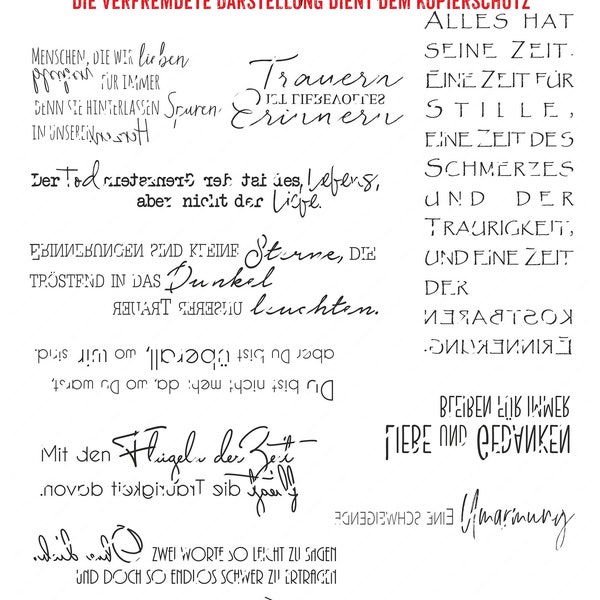 DIE VERFREMDETE DARSTELLUNG DIENT DEM KOPIERSCHUTZ
MENSCHEN, DIE WIR lieben
gehen nie FÜR IMMER
DENN SIE HINTERLASSEN Spuren
IN UNSEREN Herzen
Trauern
IST LIEBEVOLLES
Erinnern
ALLES HAT
SEINE ZEIT.
EINE ZEIT FÜR
STILLE,
EINE ZEIT DES
SCHMERZES
UND DER
TRAURIGKEIT,
UND EINE ZEIT
DER
KOSTBAREN
ERINNERUNG.
Der Tod ist der Grenzstein des Lebens,
aber nicht der Liebe.
ERINNERUNGEN SIND KLEINE Sterne, DIE
TRÖSTEND IN DAS Dunkel
UNSERER TRAUER leuchten.
Du bist nicht mehr da, wo Du warst,
aber Du bist überall, wo wir sind.
LIEBE UND GEDANKEN
BLEIBEN FÜR IMMER
Mit den Flügeln der Zeit
fliegt die Traurigkeit davon.
EINE SCHWEIGENDE Umarmung
Ohne dich. ZWEI WORTE SO LEICHT ZU SAGEN
UND DOCH SO ENDLOS SCHWER ZU ERTRAGEN